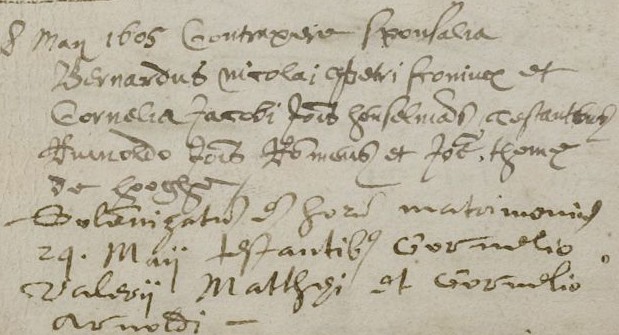 8 Maij 1605 Contraxere sponsalia
Bernardus Nicolai Petri et
Cornelia Jacobi Jois testantibus
Rumoldo Jois et Joe
de Hooghe
Solemnizatus horum matrimonium
29. Maij testantibus Cornelio
Valerij Matthei et Cornelio
Arnoldi —